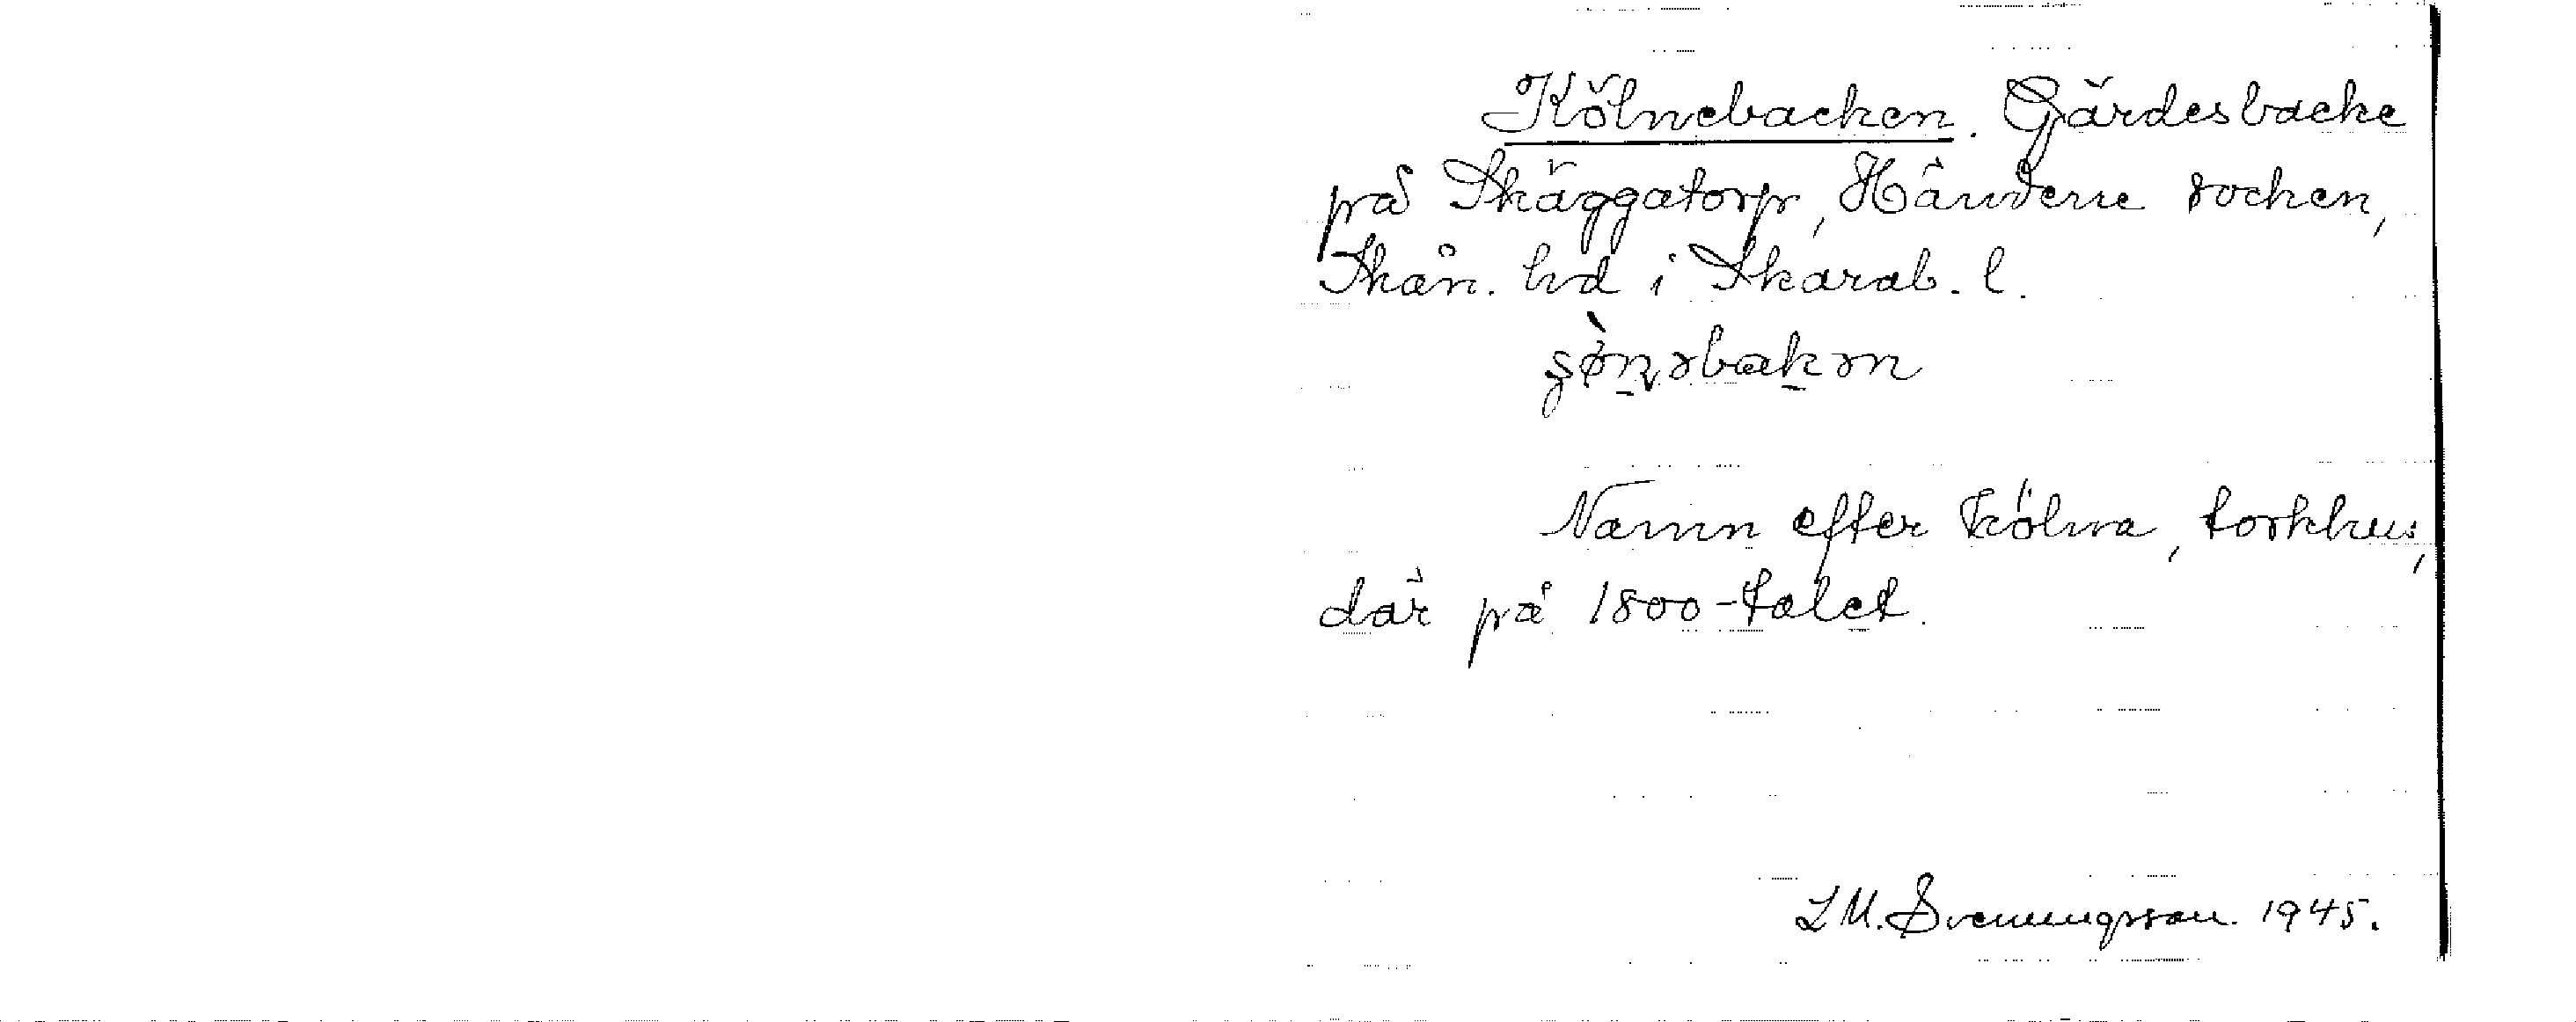 Kölnebacken. Gärdesbacke
på Skäggatorp, Händene socken,
Skån. hd i Skarab. l.
Namn efter kölna, torkhus,
där på 1800-talet.
L M. Svenungsson. 1945.